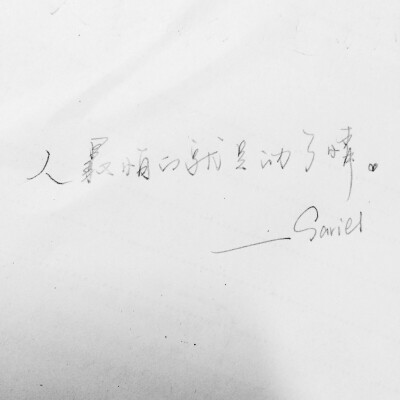 人最怕的就是动了情。
——Sariel